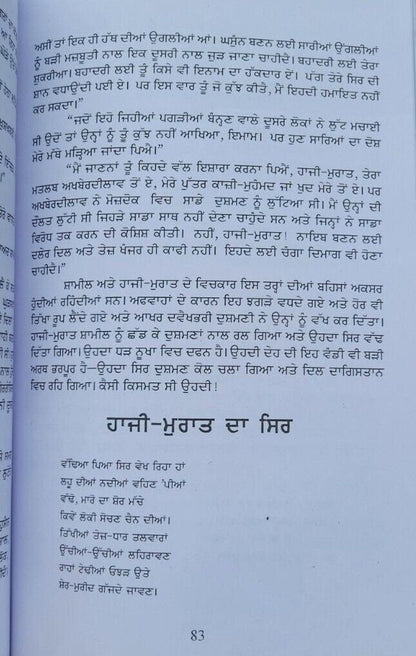 ਅਸੀਂ ਤਾਂ ਇਕ ਹੀ ਹੱਥ ਦੀਆਂ ਉਂਗਲੀਆਂ ਆਂ। ਘਸੁੰਨ ਬਣਨ ਲਈ ਸਾਰੀਆਂ ਉਂਗਲੀਆਂ
ਨੂੰ ਬੜੀ ਮਜ਼ਬੂਤੀ ਨਾਲ ਇਕ ਦੂਸਰੀ ਨਾਲ ਜੁੜ ਜਾਣਾ ਚਾਹੀਦੈ। ਬਹਾਦਰੀ ਲਈ ਤੇਰਾ
ਸ਼ੁਕਰੀਆ। ਬਹਾਦਰੀ ਲਈ ਤੂੰ ਕਿਸੇ ਵੀ ਇਨਾਮ ਦਾ ਹੱਕਦਾਰ ਏਂ। ਪੱਗ ਤੇਰੇ ਸਿਰ ਦੀ
ਸ਼ਾਨ ਵਧਾਉਂਦੀ ਪਈ ਏ। ਪਰ ਇਸ ਵਾਰ ਤੂੰ ਜੋ ਕੁੱਝ ਕੀਤੈ, ਮੈਂ ਇਹਦੀ ਹਮਾਇਤ ਨਹੀਂ
ਕਰ ਸਕਦਾ।”
“ਜਦੋਂ ਇਹੋ ਜਿਹੀਆਂ ਪਗੜੀਆਂ ਬੰਨ੍ਹਣ ਵਾਲੇ ਦੂਸਰੇ ਲੋਕਾਂ ਨੇ ਲੁੱਟ ਮਚਾਈ
ਸੀ ਉਦੋਂ ਤਾਂ ਉਨ੍ਹਾਂ ਨੂੰ ਤੂੰ ਕੁੱਝ ਨਹੀਂ ਆਖਿਆ, ਇਮਾਮ। ਪਰ ਹੁਣ ਸਾਰਿਆਂ ਦਾ ਦੋਸ਼
ਮੇਰੇ ਮੱਥੇ ਮੜ੍ਹਿਆ ਜਾਂਦਾ ਪਿਐ।”
“ਮੈਂ ਜਾਣਨਾਂ ਤੂੰ ਕਿਹਦੇ ਵੱਲ ਇਸ਼ਾਰਾ ਕਰਨਾ ਪਿਐਂ, ਹਾਜੀ-ਮੁਰਾਤ, ਤੇਰਾ
ਮਤਲਬ ਅਖਬੇਰਦੀਲਾਵ ਤੋਂ ਏ, ਮੇਰੇ ਪੁੱਤਰ ਕਾਜ਼ੀ-ਮੁਹੰਮਦ ਜਾਂ ਖੁਦ ਮੇਰੇ ਤੋਂ ਏ। ਪਰ
ਅਖਬੇਰਦੀਲਾਵ ਨੇ ਮੋਜ਼ਦੋਕ ਵਿਚ ਸਾਡੇ ਦੁਸ਼ਮਣ ਨੂੰ ਲੁੱਟਿਆ ਸੀ। ਮੈਂ ਉਨ੍ਹਾਂ ਦੀ
ਦੌਲਤ ਲੁੱਟੀ ਸੀ ਜਿਹੜੇ ਸਾਡਾ ਸਾਥ ਨਹੀਂ ਦੇਣਾ ਚਾਹੁੰਦੇ ਸਨ ਅਤੇ ਜਿਨ੍ਹਾਂ ਨੇ ਸਾਡਾ
ਵਿਰੋਧ ਤਕ ਕਰਨ ਦੀ ਕੋਸ਼ਿਸ਼ ਕੀਤੀ। ਨਹੀਂ, ਹਾਜੀ-ਮੁਰਾਤ! ਨਾਇਬ ਬਣਨ ਲਈ
ਦਲੇਰ ਦਿਲ ਅਤੇ ਤੇਜ਼ ਖੰਜਰ ਹੀ ਕਾਫੀ ਨਹੀਂ। ਇਹਦੇ ਲਈ ਚੰਗਾ ਦਿਮਾਗ ਵੀ ਹੋਣਾ
ਚਾਹੀਦੈ।”
ਸ਼ਾਮੀਲ ਅਤੇ ਹਾਜੀ-ਮੁਰਾਤ ਦੇ ਵਿਚਕਾਰ ਇਸ ਤਰ੍ਹਾਂ ਦੀਆਂ ਬਹਿਸਾਂ ਅਕਸਰ
ਹੁੰਦੀਆਂ ਰਹਿੰਦੀਆਂ ਸਨ। ਅਫਵਾਹਾਂ ਦੇ ਕਾਰਨ ਇਹ ਝਗੜੇ ਵਧਦੇ ਗਏ ਅਤੇ ਹੋਰ ਵੀ
ਤਿੱਖਾ ਰੂਪ ਲੈਂਦੇ ਗਏ ਅਤੇ ਆਖਰ ਦਵੈਖਭਰੀ ਦੁਸ਼ਮਣੀ ਨੇ ਉਨ੍ਹਾਂ ਨੂੰ ਵੱਖ ਕਰ ਦਿੱਤਾ।
ਹਾਜੀ-ਮੁਰਾਤ ਸ਼ਾਮੀਲ ਨੂੰ ਛੱਡ ਕੇ ਦੁਸ਼ਮਣਾਂ ਨਾਲ ਰਲ ਗਿਆ ਅਤੇ ਉਹਦਾ ਸਿਰ ਵੱਢ
ਦਿੱਤਾ ਗਿਆ। ਉਹਦਾ ਧੜ ਨੂਖਾ ਵਿਚ ਦਫਨ ਹੈ। ਉਹਦੀ ਦੇਹ ਦੀ ਇਹ ਵੰਡੀ ਵੀ ਬੜੀ
ਅਰਥ ਭਰਪੂਰ ਹੈ—ਉਹਦਾ ਸਿਰ ਦੁਸ਼ਮਣ ਕੋਲ ਚਲਾ ਗਿਆ ਅਤੇ ਦਿਲ ਦਾਗਿਸਤਾਨ
ਵਿਚ ਰਹਿ ਗਿਆ। ਕੈਸੀ ਕਿਸਮਤ ਸੀ ਉਹਦੀ!
ਹਾਜੀ-ਮੁਰਾਤ ਦਾ ਸਿਰ
ਵੱਢਿਆ ਪਿਆ ਸਿਰ ਵੇਖ ਰਿਹਾ ਹਾਂ
ਲਹੂ ਦੀਆਂ ਨਦੀਆਂ ਵਹਿਣ ’ਪੀਆਂ
ਵੱਢੋ, ਮਾਰੋ ਦਾ ਸ਼ੋਰ ਮੱਚੇ
ਕਿਵੇਂ ਲੋਕੀ ਸੋਚਣ ਚੈਨ ਦੀਆਂ।
ਤਿੱਖੀਆਂ ਤੇਜ਼-ਧਾਰ ਤਲਵਾਰਾਂ
ਉੱਚੀਆਂ-ਉੱਚੀਆਂ ਲਹਿਰਾਵਣ
ਰਾਹਾਂ ਟੇਢੀਆਂ ਓਝੜ ਉਤੇ
ਸ਼ੇਰ-ਮੁਰੀਦ ਗੱਜਦੇ ਜਾਵਣ।
83